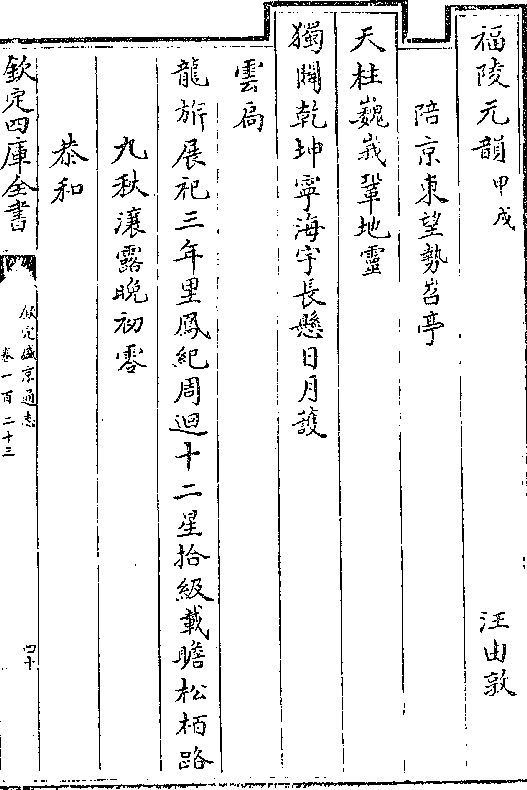 福陵元韻 甲戌 汪由敦
陪京東望勢岧亭
天柱巍峩鞏地靈
獨闢乾坤寧海宇長懸日月護
雲扃
龍旂展祀三年里鳳紀周迴十二星拾級載瞻松栢路
九秋瀼露晩初零
恭和
欽定四庫全書
欽定盛京通志
卷一百二十三
四十